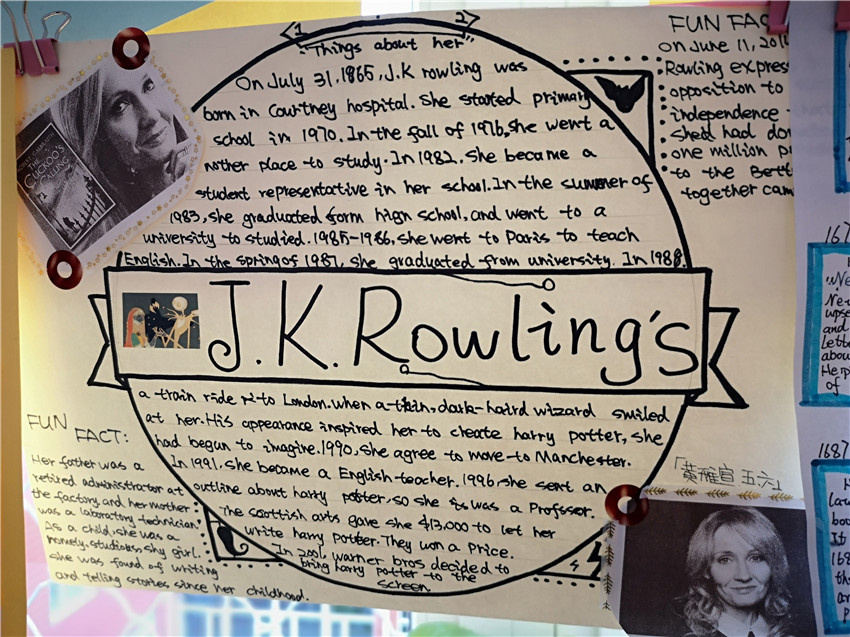 1 2
"Things about her"
On July 31, 1965, J.K rowling was
born in Courtney hospital. She started primary
school in 1970. In the fall of 1976, she went a
nother place to study. In 1982, She became a
student representative in her school. In the summer of
1983, she graduated form high school, and went to a
university to studied. 1985-1986, she went to Paris to teach
English. In the spring of 1987, she graduated from university. In 1988.
J.K.Rowling's
a train ride to London. when a thin, dark-haird wizard smiled
at her. His appearance inspired her to create harry potter, she
had begun to imagine. 1990, she agree to move to Manchester.
In 1991, she became a English-teacher. 1996, she sent an
outline about harry potter, so she was a Profssor.
The scottish arts gave she $13,000 to let her
write harry potter. They won a Price.
In 2001, warner bros decided to
bring harry potter to the
screen
FUN FACT:
Her father was a
retired administrator at
the factory, and her mother
was a laboratory technician.
As a child, she was a
homely, studios, shy girl.
she was found of writing
and telling stories since her childhood.
FUN FAC
on June 11, 201
Rowling expres
opposition to
independence
shed had do
one million p
to the Bett
together cam
THE
CUCKOO'S
CALLING
「黄雅宣 五六」
167
"Ne
Ne
upse
and
Lette
abou
He pi
of
1687
law
boo
It
168
the
ar
P